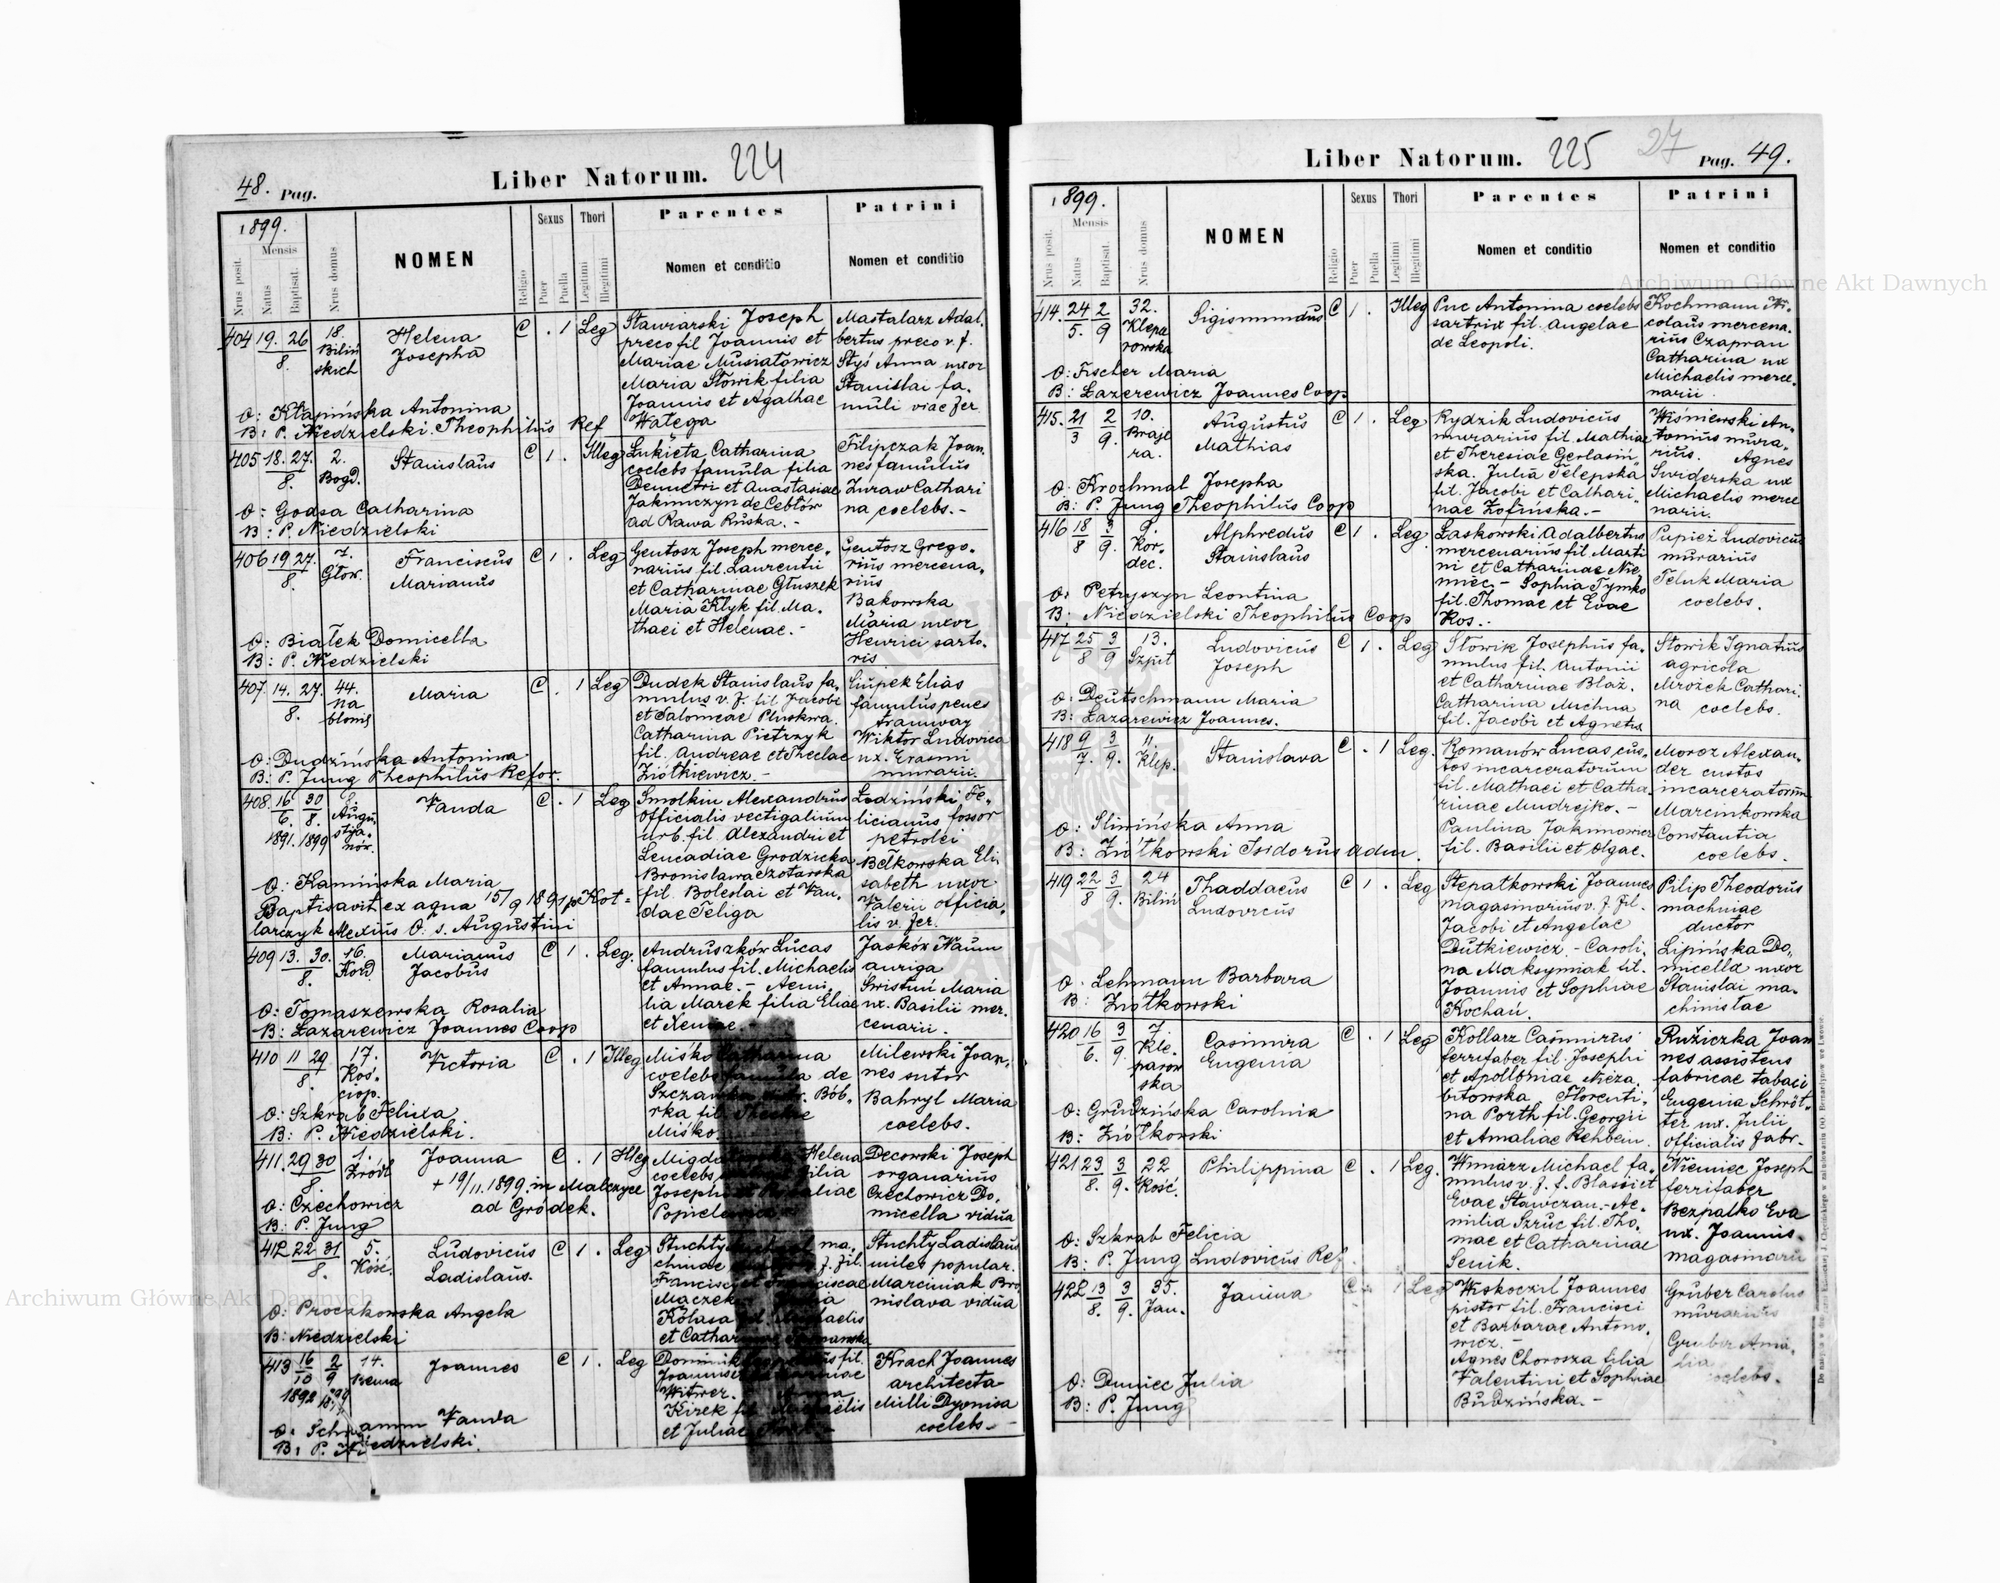 48. Pag.
Liber Natorum. 224
1899.
Nrus posit.
Mensis
Natus
Baptisat.
Nrus domus
NOMEN
Religio
Sexus
Puer
Puella
Thori
Legitimi
Illegitimi
Parentes
Nomen et conditio
Patrini
Nomen et conditio
404 19. 26 8. 18. Biliń skich
Helena Josepha
C . 1 Leg
Stawiarski Joseph
preco fil Joannis et
Mariae Musiatowicz
Maria Słowik filia
Joannis et Agathae
Wałęga
Mastalarz Adal.
bertus preco v. f.
Styś Anna uxor
Stanislai fa.
muli viae fer
O: Kłapińska Antonina
B: P. Niedzielski Theophilus Ref
405 18. 27. 8. 2. Bogd.
Stanislaus
C 1 . Illeg
Łukięta Catharina
coelebs famula filia
Demetri et Anastasiae
Jakimczyn de Ceblów
ad Rawa Ruska. -
Filipczak Joan.
nes famulus
Żuraw Cathari
na coelebs. -
O: Godsa Catharina
B: P. Niedzielski
406 19 27. 8. 7. Głow.
Franciscus
Marianus
C 1 . Leg
Gentosz Joseph merce.
narius fil. Laurentii
et Catharinae Głuszek
Maria Kłyk fil. Ma.
thaei et Helenae. -
Gentosz Grego.
rius mercena.
rius
Bakowska
Maria uxor
Henrici sarto.
ris
O: Białek Domicella
B: P. Niedzielski
407. 14. 27. 8. 44. na błonie
Maria
C . 1 Leg
Dudek Stanislaus fa.
mulus v. f. fil Jacobi
et Salomeae Pluskwa.
Catharina Pietrzyk
fil. Andreae et Theclae
Ziółkiewicz. -
Ciupek Elias
famulus penes
tramway
Wiktor Ludovica
ux. Erasmi
murarii.
O: Dudzińska Antonina
B: P. Jung Theophilus Refor.
408. 16 30 6. 8. 1891. 1899
Vanda
C . 1 Leg
Smolkin Alexandrus
Officialis vectigalium
urb. fil. Alexandri et
Leucadiae Grodzicka
Bronislawa Zotarska
fil. Boleslai et Van.
dae Teliga
Łodziński Fe.
licianus fossor
petrolei
Bełkowska Eli
sabeth uxor
Valerii officia.
lis v. fer.
O: Kamińska Maria
Baptisavit ex aqua 15/9 1891 p. Kot=
larczyk Alexius O. s. Augustini
409 13. 30. 8. 16. Kord
Marianus
Jacobus
C 1 . Leg.
Andruszków Lucas
famulus fil. Michaelis
et Annae. - Aemi.
lia Marek filia Eliae
et Xeniae -
Jaskóv Naum
auriga
Świstuń Maria
ux. Basilii mer.
cenarii.
O: Tomaszewska Rosalia
B: Łazarewicz Joannes Coop
410 11 29 8. 17. Koś. ciop.
Victoria
C . 1 Illeg
Miśko Catharina
coelebs famula de
Bób.
rka fil. Theclae
Miśko.
Milewski Joan.
nes sutor
Bahryl Maria
coelebs.
O: Szkrab Felixa
B: P. Niedzielski.
411. 29 30 8. 1. Źródl
Joanna
+ 19/11. 1899. in Malczyce
ad Gródek.
C . 1 Illeg
Helena
coelebs filia
Decowski Joseph
organarius
Czechowicz Do.
micella vidua
O: Czechowicz
B: P. Jung
412 22 31 8. 5. Kość.
Ludovicus
Ladislaus.
C 1 . Leg
Stuchły
Stuchły Ladislaus
miles popular.
Marciniak Bro.
nislava vidua
O: Proczkowska Angela
B: Niedzielski
413 16 2 10 9 1892 14.
Joannes
C 1 . Leg
Witwer.
et Juliae
Krach Joannes
architecta
Milli Dyonisa
coelebs -
O: Schramm Vanda
B: P. Niedzielski.
Liber Natorum. 225 27 Pag. 49.
1899.
Nrus posit.
Mensis
Natus
Baptisat.
Nrus domus
NOMEN
Religio
Sexus
Puer
Puella
Thori
Legitimi
Illegitimi
Parentes
Nomen et conditio
Patrini
Nomen et conditio
414. 24 2 5. 9 32. Klepa rowska
Sigismundus
C 1 . Illeg
Puc Antonina coelebs
sartrix fil. Angelae
de Leopoli.
Kochmann Ni.
colaus mercena.
rius Czapran
Catharina ux
Michaelis merce.
narii.
O: Fischer Maria
B: Łazerewicz Joannes Coop
415. 21 2 3 9. 10. Braje ra.
Augustus
Mathias
C 1 . Leg
Rydzik Ludovicus
murarius fil. Mathiae
et Theresiae Gerlasiń
ska. Julia Telepska
fil. Jacobi et Cathari.
nae Zofińska. -
Wiśniewski An.
tonius mura.
rius. Agnes
Świderska ux
Michaelis merce
narii.
O: Krochmal Josepha
B: P. Jung Theophilus Coop
416 18 3 8 9. 9. Kor. dec.
Alphredus
Stanislaus
C 1 . Leg
Laskowski Adalbertus
mercenarius fil. Marti
ni et Catharinae Nie
miec. - Sophia Tymko
fil. Thomae et Evae
Kos. -
Pupież Ludovicus
murarius
Teluk Maria
coelebs.
O: Petryszyn Leontina
B: Niedzielski Theophilus Coop
417 25 3 8 9 13. Szpit
Ludovicus
Joseph
C 1 . Leg
Słowik Josephus fa.
mulus fil. Antonii
et Catharinae Błaż.
Catharina Michna
fil. Jacobi et Agnetis
Słowik Ignatius
agricola
Mrożek Cathari.
na coelebs.
O: Deutschmann Maria
B: Łazarewicz Joannes.
418 9 3 7. 9. 4. Klep.
Stanislava
C . 1 Leg.
Romanów Lucas cus.
tos incarceratorum
fil. Mathaei et Catha.
rinae Mudrejko. -
Paulina Jakimowicz
fil. Basilii et Olgae.
Moroz Alexan.
der custos
incarceratorum
Marcinkowska
Constantia
coelebs.
O: Sliwińska Anna
B: Ziółkowski Isidorus adm.
419 22 3 8 9. 24 Biliń
Thaddaeus
Ludovicus
C 1 . Leg
Stepatkowski Joannes
magasinarius v. f. fil.
Jacobi et Angelae
Dutkiewicz. - Caroli.
na Maksymiak fil.
Joannis et Sophiae
Kochan.
Pilip Theodorus
machinae
ductor
Lipińska Do.
micella uxor
Stanislai ma.
chinistae
O. Lehmann Barbara
B: Ziółkowski
420 16 3 6. 9. 7. Kle. parow ska
Casimira
Eugenia
C . 1 Leg
Kollarz Casimirus
ferrifaber fil. Josephi
et Apolloniae Nieza.
bitowska. Florenti.
na Porth fil. Georgii
et Amaliae Rehbein.
Ružiczka Joan
nes assistens
fabricae tabaci
Eugenia Schröt.
ter ux. Julii
officialis fabr.
O: Grudzińska Carolina
B: Ziółkowski
421 23 3 8. 9. 22 Kość.
Philippina
C . 1 Leg.
Winiarz Michael fa.
mulus v. f. f. Blasii et
Evae Stawczan. - Ae.
milia Szruc fil. Tho.
mae et Catharinae
Senik.
Niemiec Joseph
ferrifaber
Bezpalko Eva
ux. Joannis
magasinarii
O: Szkrab Felicia
B: P. Jung Ludovicus Ref
422 13 3 8. 9. 35. Jan.
Janina
C . 1 Leg
Wiskoczil Joannes
pistor fil. Francisci
et Barbarae Antono.
wicz. -
Agnes Chorosza filia
Valentini et Sophiae
Budzińska. -
Gruber Carolus
murarius
Gruber Ama.
lia
coelebs.
O: Duniec Julia
B: P. Jung
Archiwum Główne Akt Dawnych
Archiwum Główne Akt Dawnych